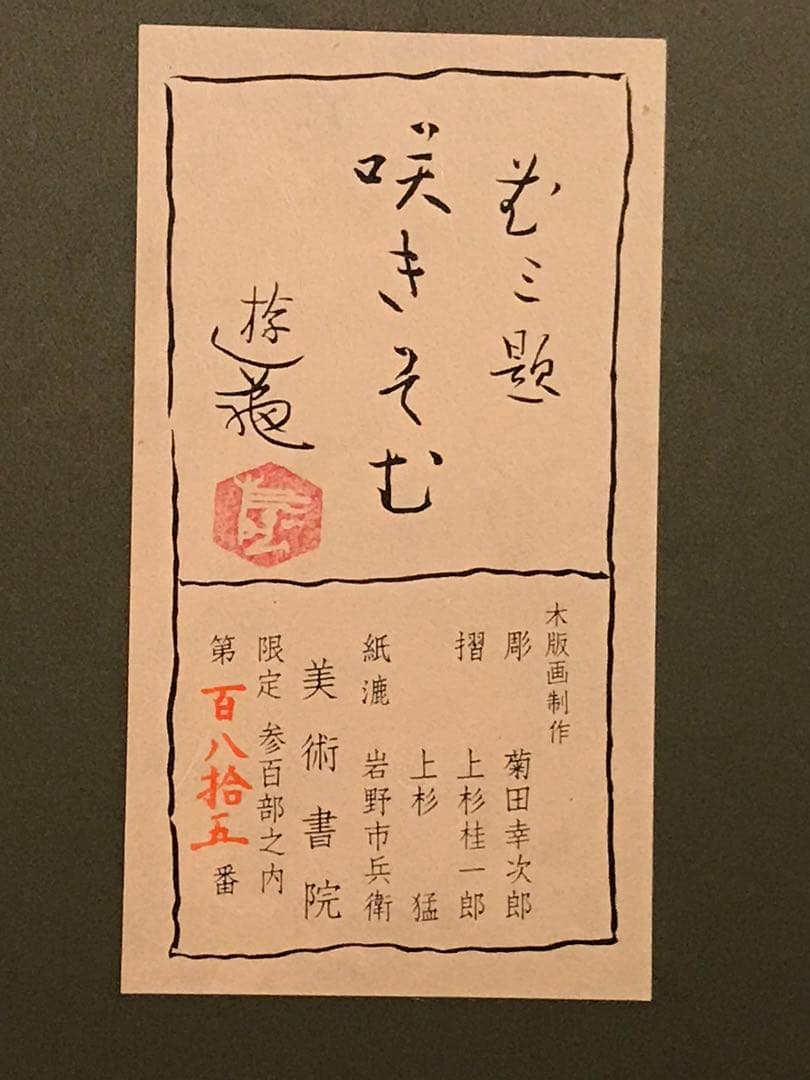 花三題
咲きそむ
木版画制作
彫 菊田幸次郎
摺 上杉桂一郎
上杉 猛
紙漉 岩野市兵衛
美術書院
限定 参百部之内
第百八拾五番